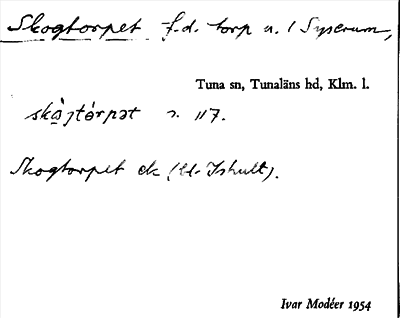 Skogtorpet f.d. torp u. Syserum,
Tuna sn, Tunaläns hd, Klm. l.
s. 117.
Skogtorpet ek (Ishult).
Ivar Modéer 1954